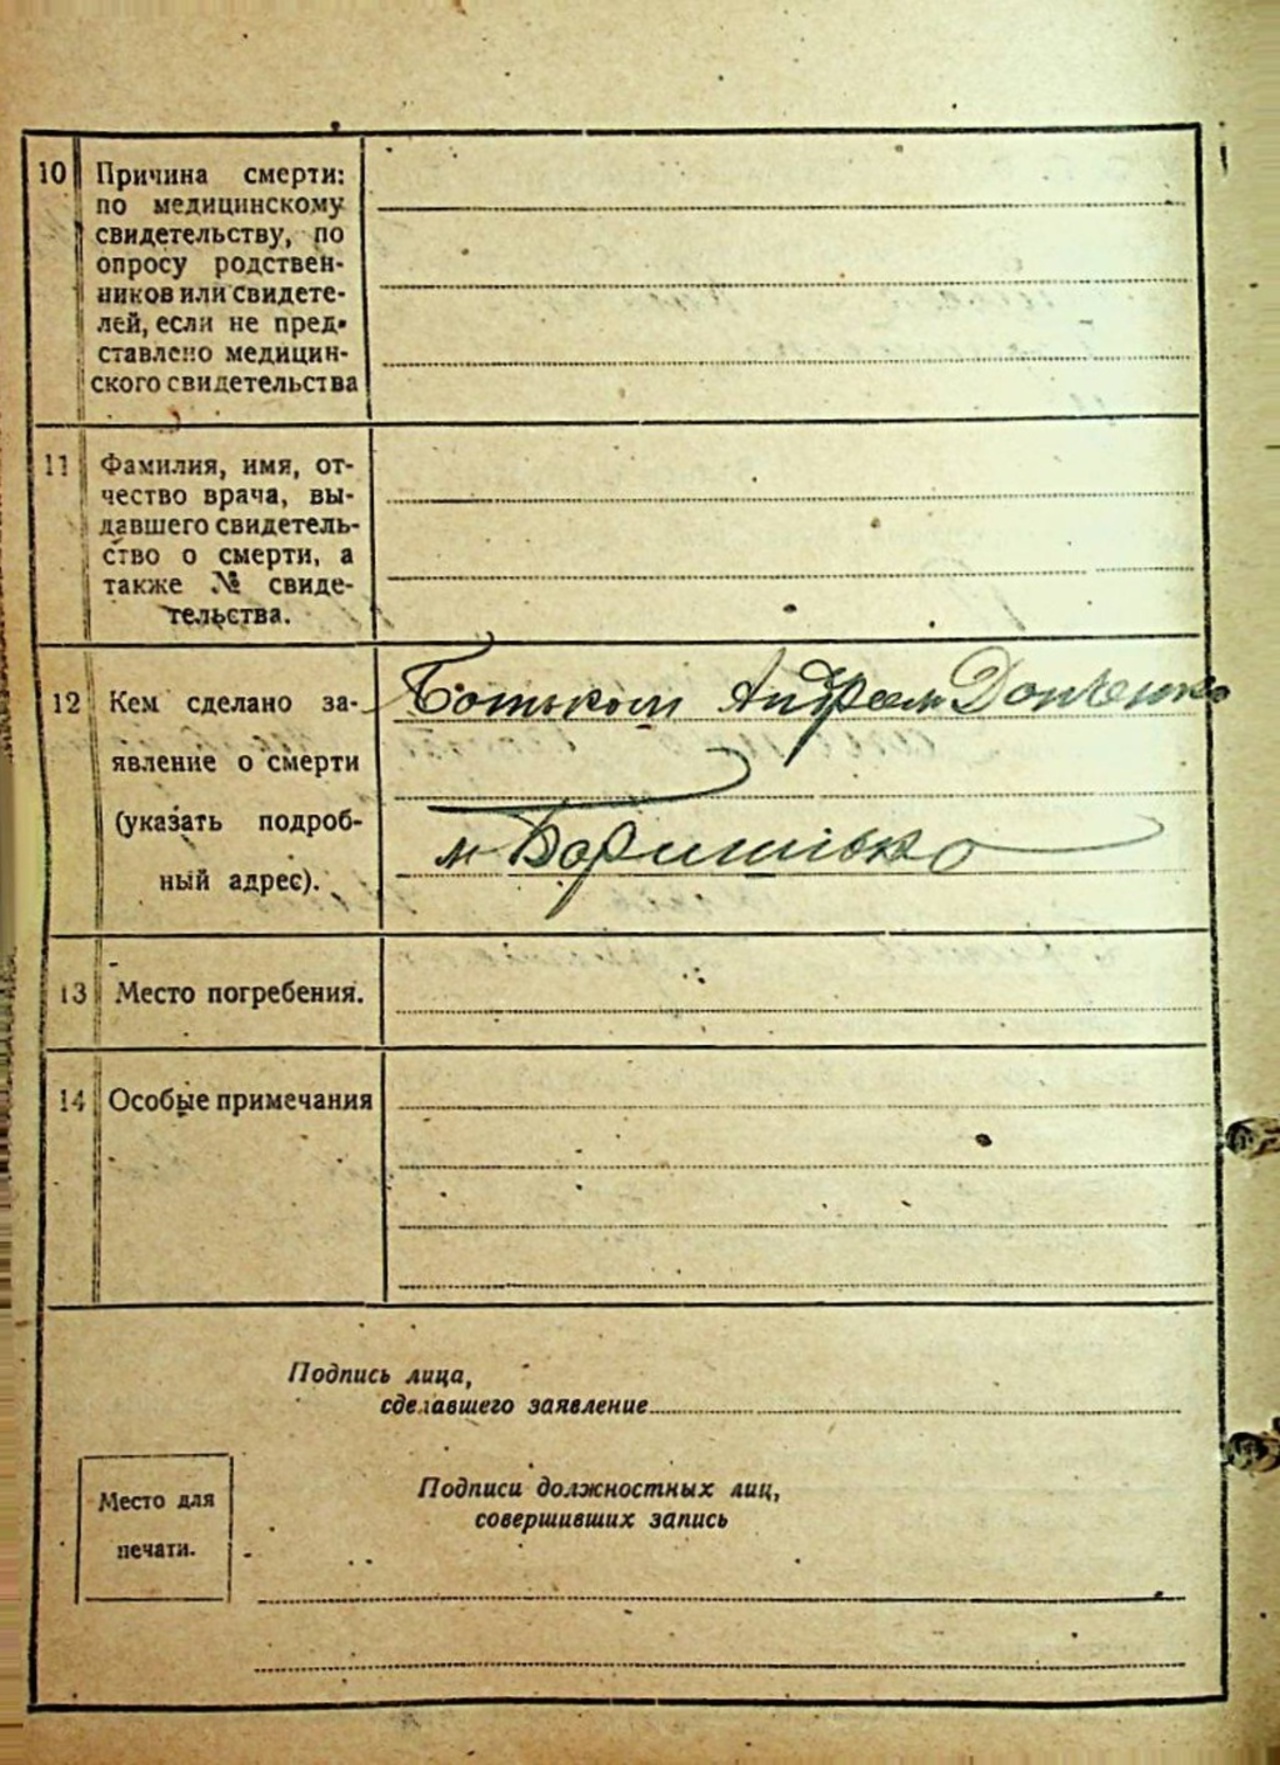 10 Причина смерти:
по медицинскому
свидетельству, по
опросу родствен-
ников или свидете-
лей, если не пред-
ставлено медицин-
ского свидетельства
11 Фамилия, имя, от-
чество врача, вы-
давшего свидетель-
ство о смерти, а
также № свиде-
тельства.
12 Кем сделано за-
явление о смерти
(указать подроб-
ный адрес).
Батьком Андреем Донченко
м Боришпіль
13 Место погребения.
14 Особые примечания
Подпись лица,
сделавшего заявление
Место для
печати.
Подписи должностных лиц,
совершивших запись